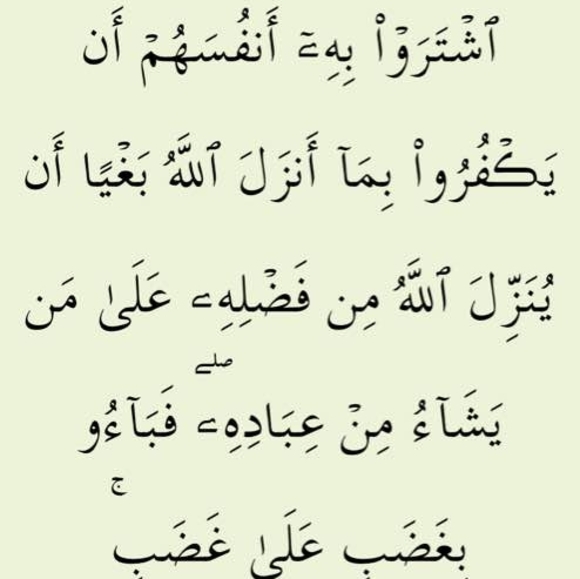 ٱشْتَرَوْا۟ بِهِۦٓ أَنفُسَهُمْ أَن
يَكْفُرُوا۟ بِمَآ أَنزَلَ ٱللَّهُ بَغْيًا أَن
يُنَزِّلَ ٱللَّهُ مِن فَضْلِهِۦ عَلَىٰ مَن
يَشَآءُ مِنْ عِبَادِهِۦ ۖ فَبَآءُو
بِغَضَبٍ عَلَىٰ غَضَبٍ ۚ